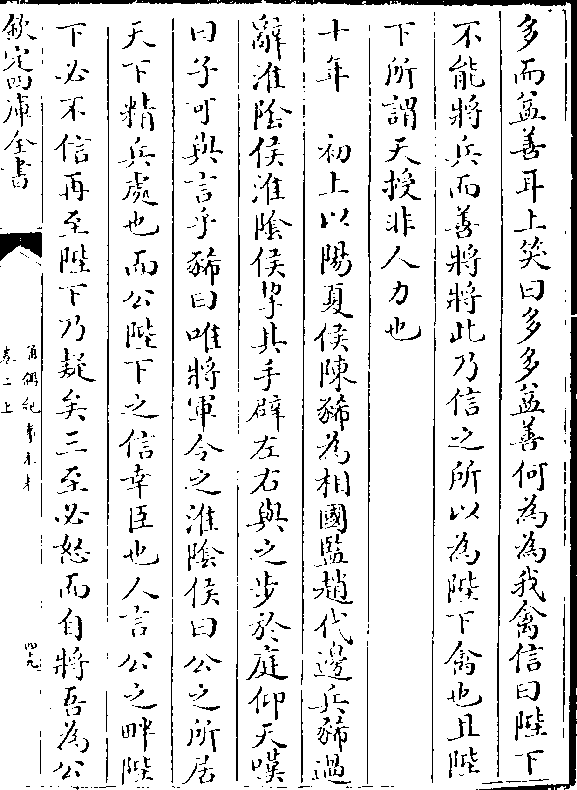 多而益善耳上笑曰多多益善何為為我禽信曰陛下
不能將兵而善將將此乃信之所以為陛下禽也且陛
下所謂天授非人力也
十年　初上以陽夏侯陳豨為相國監趙代邊兵豨過
辭淮陰侯淮陰侯挈其手辟左右與之步於庭仰天嘆
曰子可與言乎豨曰唯將軍令之淮陰侯曰公之所居
天下精兵處也而公陛下之信幸臣也人言公之畔陛
下必不信再至陛下乃疑矣三至必怒而自將吾為公
欽定四庫全書
通鑑紀事本末
卷二上
四九